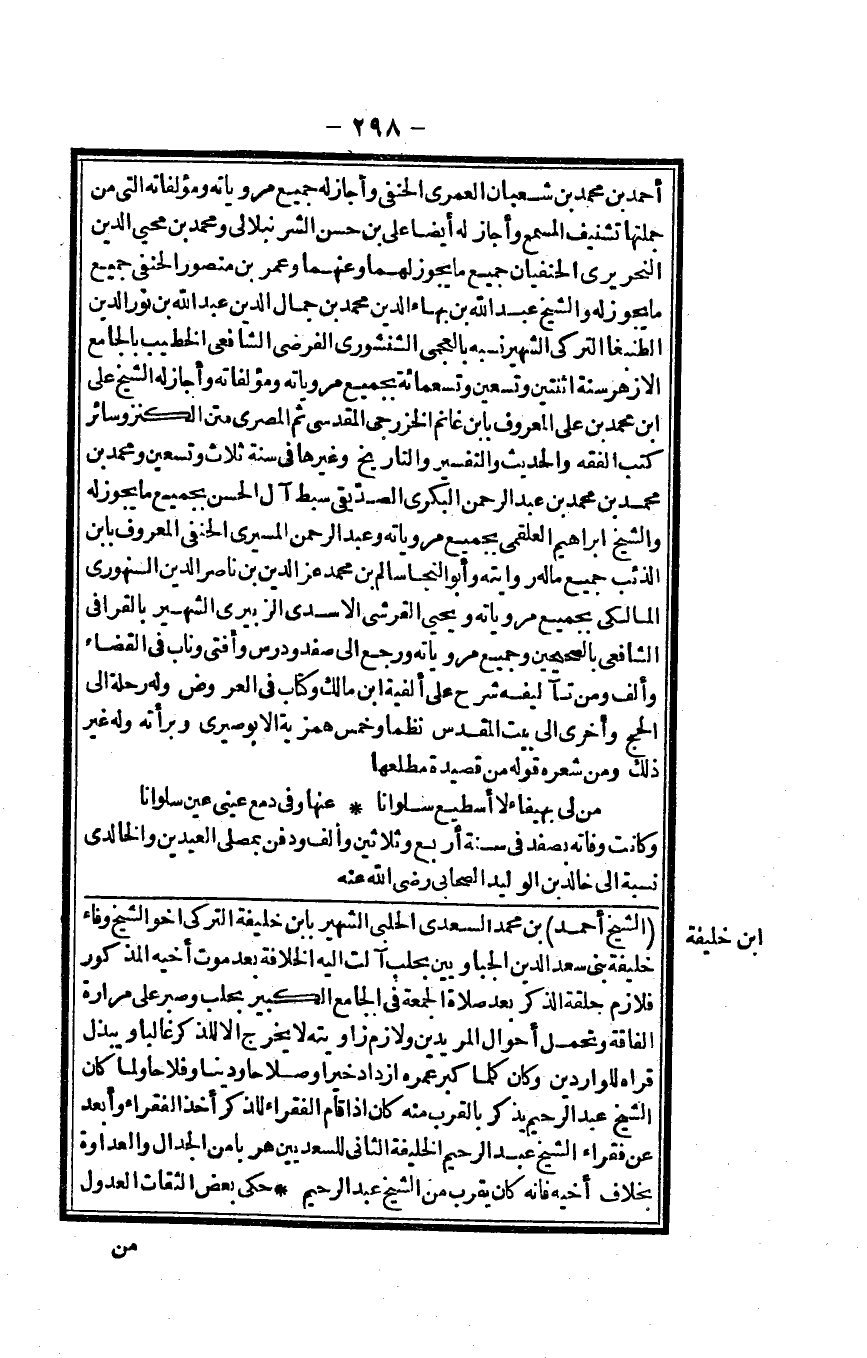 - ٢٩٨ -
أحمد بن محمد بن شعبان العمرى الحنفى وأجاز له جميع مروياته ومؤلفاته التى من
جملتها تشنيف المسمع وأجاز له أيضا على بن حسن الشرنبلالى ومحمد بن محيى الدين
النحريرى الحنفيان جميع مايجوز لهما وعنهما وعمر بن منصور الحنفى جميع
مايجوز له والشيخ عبد الله بن بهاء الدين محمد بن جمال الدين عبد الله بن نور الدين
الطنبغا التركى الشهير نسبه بالعجمى الشنشورى الفرضى الشافعى الخطيب بالجامع
الازهر سنة اثنتين وتسعين وتسعمائة بجميع مروياته ومؤلفاته وأجاز له الشيخ على
ابن محمد بن على المعروف بابن غانم الخزرجى المقدسى ثم المصرى متن الكنز وسائر
كتب الفقه والحديث والتفسير والتاريخ وغيرها فى سنة ثلاث وتسعين ومحمد بن
محمد بن محمد بن عبد الرحمن البكرى الصديقى سبط آل الحسن بجميع مايجوز له
والشيخ ابراهيم العلقمى بجميع مروياته وعبد الرحمن المسيرى الحنفى المعروف بابن
الذئب جميع ماله روايته وأبو النجا سالم بن محمد عز الدين بن ناصر الدين السنهورى
المالكى بجميع مروياته ويحيى القرشى الاسدى الزبيرى الشهير بالقرافى
الشافعى بالصحيحين وجميع مروياته ورجع الى صفد ودرس وأفتى وناب فى القضاء
وألف ومن تآليفه شرح على ألفية ابن مالك وكتاب فى العروض وله رحلة الى
الحج وأخرى الى بيت المقدس نظما وخمس همزية الابوصيرى وبرأته وله غير
ذلك ومن شعره قوله من قصيدة مطلعها
من لى بهيفاء لا أسطيع سلوانا * عنها وفى دمع عينى عين سلوانا
وكانت وفاته بصفد فى سنة أربع وثلاثين وألف ودفن بمصلى العيدين والخالدى
نسبة الى خالد بن الوليد الصحابى رضى الله عنه
(الشيخ أحمد) بن محمد السعدى الحلبى الشهير بابن خليفة التركى اخو الشيخ وفاء
ابن خليفة
خليفة بنى سعد الدين الجباويين بحلب آلت اليه الخلافة بعد موت أخيه المذكور
فلازم حلقة الذكر بعد صلاة الجمعة فى الجامع الكبير بحلب وصبر على مرارة
الفاقة وتحمل أحوال المريدين ولازم زاويته لا يخرج الا للذكر غالبا ويبذل
قراه للواردين وكان كلما كبر عمره ازداد خيرا وصلاحا ودينا وفلاحا ولما كان
الشيخ عبد الرحيم يذكر بالقرب منه كان اذا قام الفقراء للذكر أخذ الفقراء وأبعد
عن فقراء الشيخ عبد الرحيم الخليفة الثانى للسعديين هربا من الجدال والعداوة
بخلاف أخيه فانه كان يقرب من الشيخ عبد الرحيم * حكى بعض الثقات العدول
من